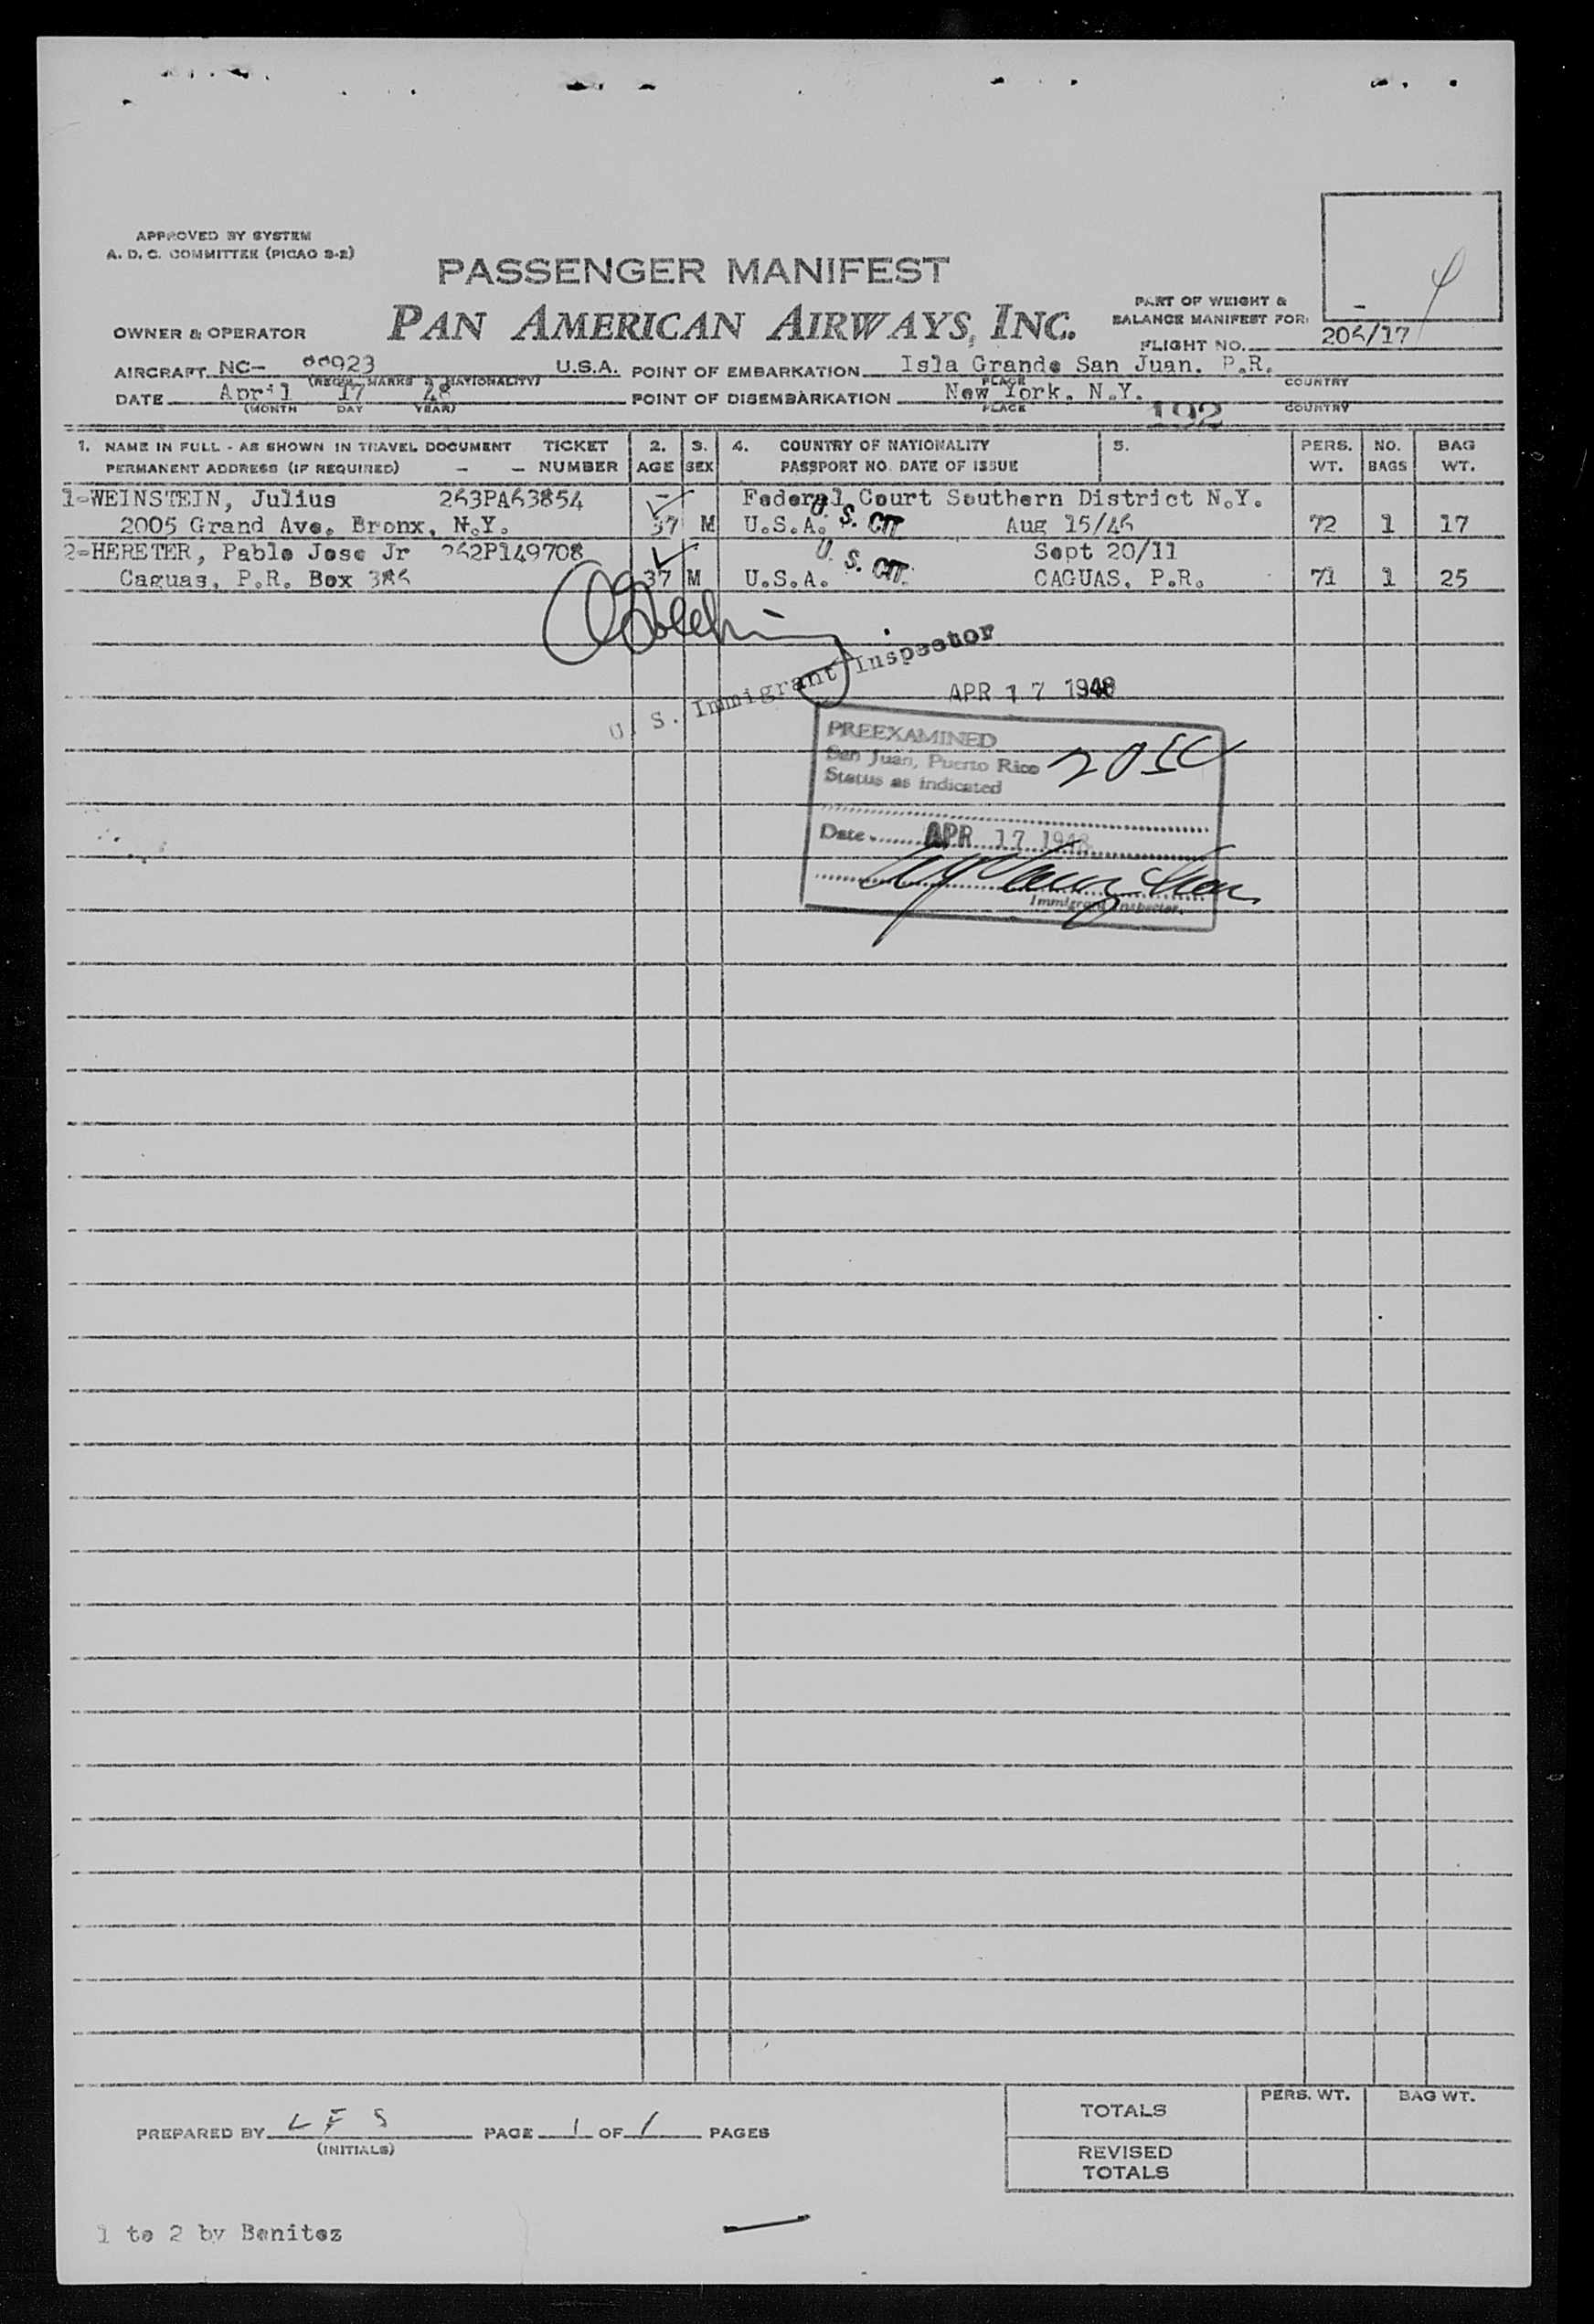 APPROVED BY SYSTEM
A. D. C. COMMITTEE (PICAO S-2)
PASSENGER MANIFEST
PAN AMERICAN AIRWAYS, INC.
OWNER & OPERATOR
PART OF WEIGHT &
BALANCE MANIFEST FOR:
FLIGHT NO. 206/17
AIRCRAFT NC- 88923 U.S.A. POINT OF EMBARKATION Isla Grande San Juan. P.R.
(REGIS. MARKS & NATIONALITY) PLACE COUNTRY
DATE April 17 48 POINT OF DISEMBARKATION New York, N.Y.
(MONTH DAY YEAR) PLACE 192 COUNTRY
1. NAME IN FULL - AS SHOWN IN TRAVEL DOCUMENT TICKET 2. 3. 4. COUNTRY OF NATIONALITY 5. PERS. NO. BAG
PERMANENT ADDRESS (IF REQUIRED) - - NUMBER AGE SEX PASSPORT NO. DATE OF ISSUE WT. BAGS WT.
1-WEINSTEIN, Julius 263PA63854 Federal Court Southern District N.Y.
2005 Grand Ave. Bronx, N.Y. 37 M U.S.A. U. S. CIT. Aug 15/46 72 1 17
2-HERETER, Pablo Jose Jr 262P149708 Sept 20/11
Caguas, P.R. Box 386 37 M U.S.A. U. S. CIT. CAGUAS, P.R. 71 1 25
U. S. Immigrant Inspector
APR 17 1948
PREEXAMINED
San Juan, Puerto Rico
Status as indicated
Date APR 17 1948
Immigrant Inspector.
PREPARED BY L F S PAGE 1 OF 1 PAGES
(INITIALS)
PERS. WT. BAG WT.
TOTALS
REVISED
TOTALS
1 to 2 by Benitez